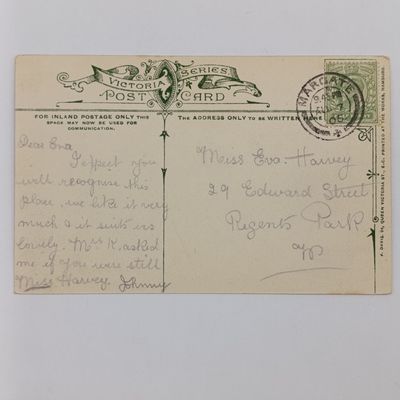 VICTORIA SERIES
POST CARD
FOR INLAND POSTAGE ONLY THIS
SPACE MAY NOW BE USED FOR
COMMUNICATION.
THE ADDRESS ONLY TO BE WRITTEN HERE
MARGATE
05
Dear Eva
I expect you
will recognise this
place, we like it very
much & it suits us
lovely. Mrs K. asked
me if you were still
Miss Harvey. Johnny
Miss Eva Harvey
29 Edward Street
Regents Park
A. DAVIS, 24, QUEEN VICTORIA ST., E.C. PRINTED AT THE WORKS, HAMBURG.